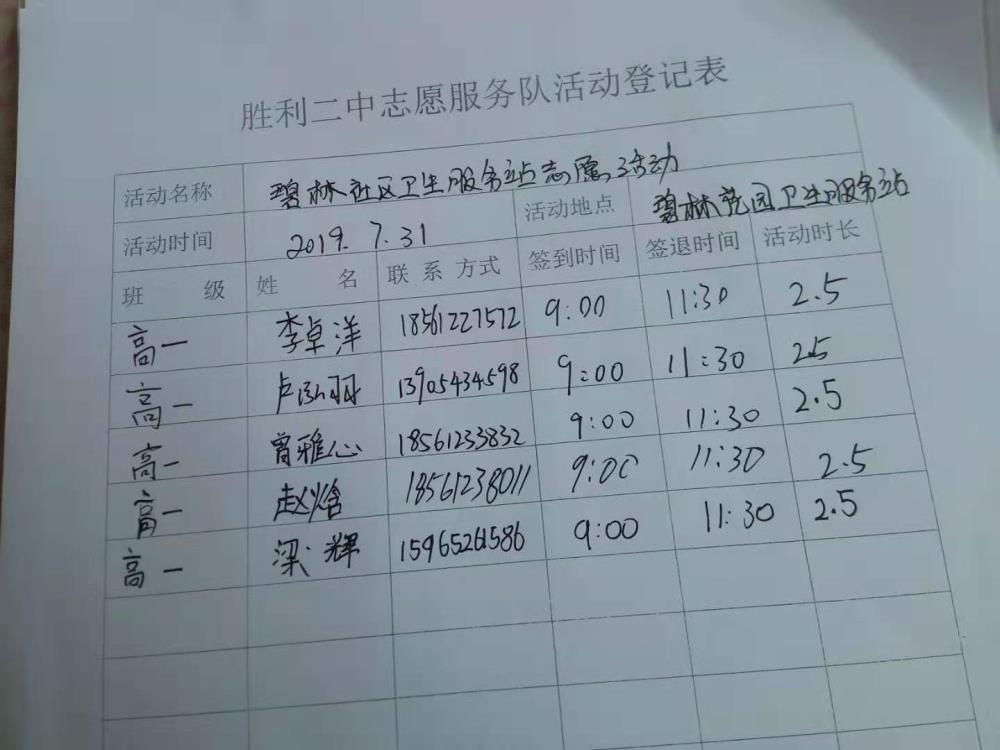 胜利二中志愿服务队活动登记表
活动名称 碧林社区卫生服务站志愿活动
活动时间 2019.7.31 活动地点 碧林花园卫生服务站
班 级 姓 名 联系方式 签到时间 签退时间 活动时长
高一 李卓洋 18561227572 9:00 11:30 2.5
高一 卢泓羽 13905434598 9:00 11:30 2.5
高一 曾雅心 18561233832 9:00 11:30 2.5
高一 赵焓 18561238011 9:00 11:30 2.5
高一 梁辉 15965261586 9:00 11:30 2.5